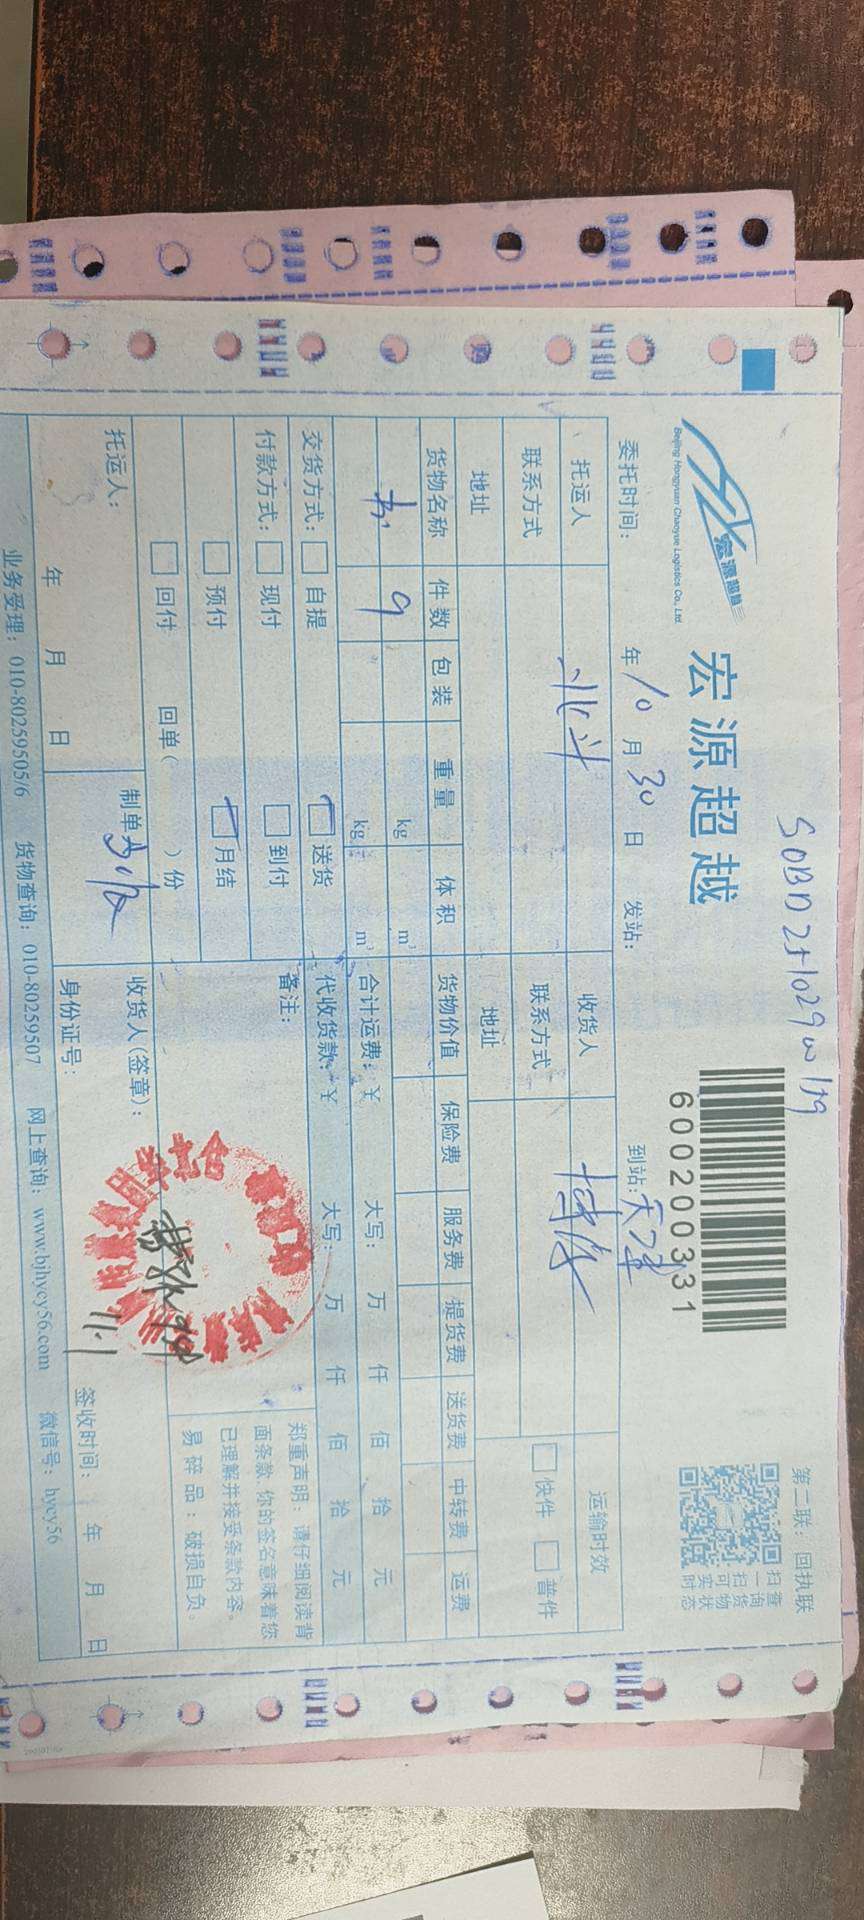 SOBD251029W179
第二联：回执联
宏源超越
Beijing Hongyuan Chaoyue Logistics Co., Ltd.
宏源超越
600200331
扫一扫可实时
查询货物状态
委托时间： 年 10 月 30 日 发站： 到站：天津
托运人 北斗 收货人 博库 运输时效
联系方式 联系方式 快件 普件
地址 地址
货物名称 件数 包装 重量 体积 货物价值 保险费 服务费 提货费 送货费 中转费 运费
书 9 kg m³
kg m³ 合计运费：￥ 大写： 万 仟 佰 拾 元
交货方式： 自提 送货 代收货款：￥ 大写： 万 仟 佰 拾 元
付款方式： 现付 到付 备注：
预付 月结
回付 回单（ ）份
郑重声明：请仔细阅读背
面条款，你的签名意味着您
已理解并接受条款内容。
易碎品：破损自负。
托运人： 制单 收货人(签章)：
11.1
年 月 日 身份证号： 签收时间： 年 月 日
业务受理：010-80259505/6 货物查询：010-80259507 网上查询：www.bjhycy56.com 微信号：hycy56